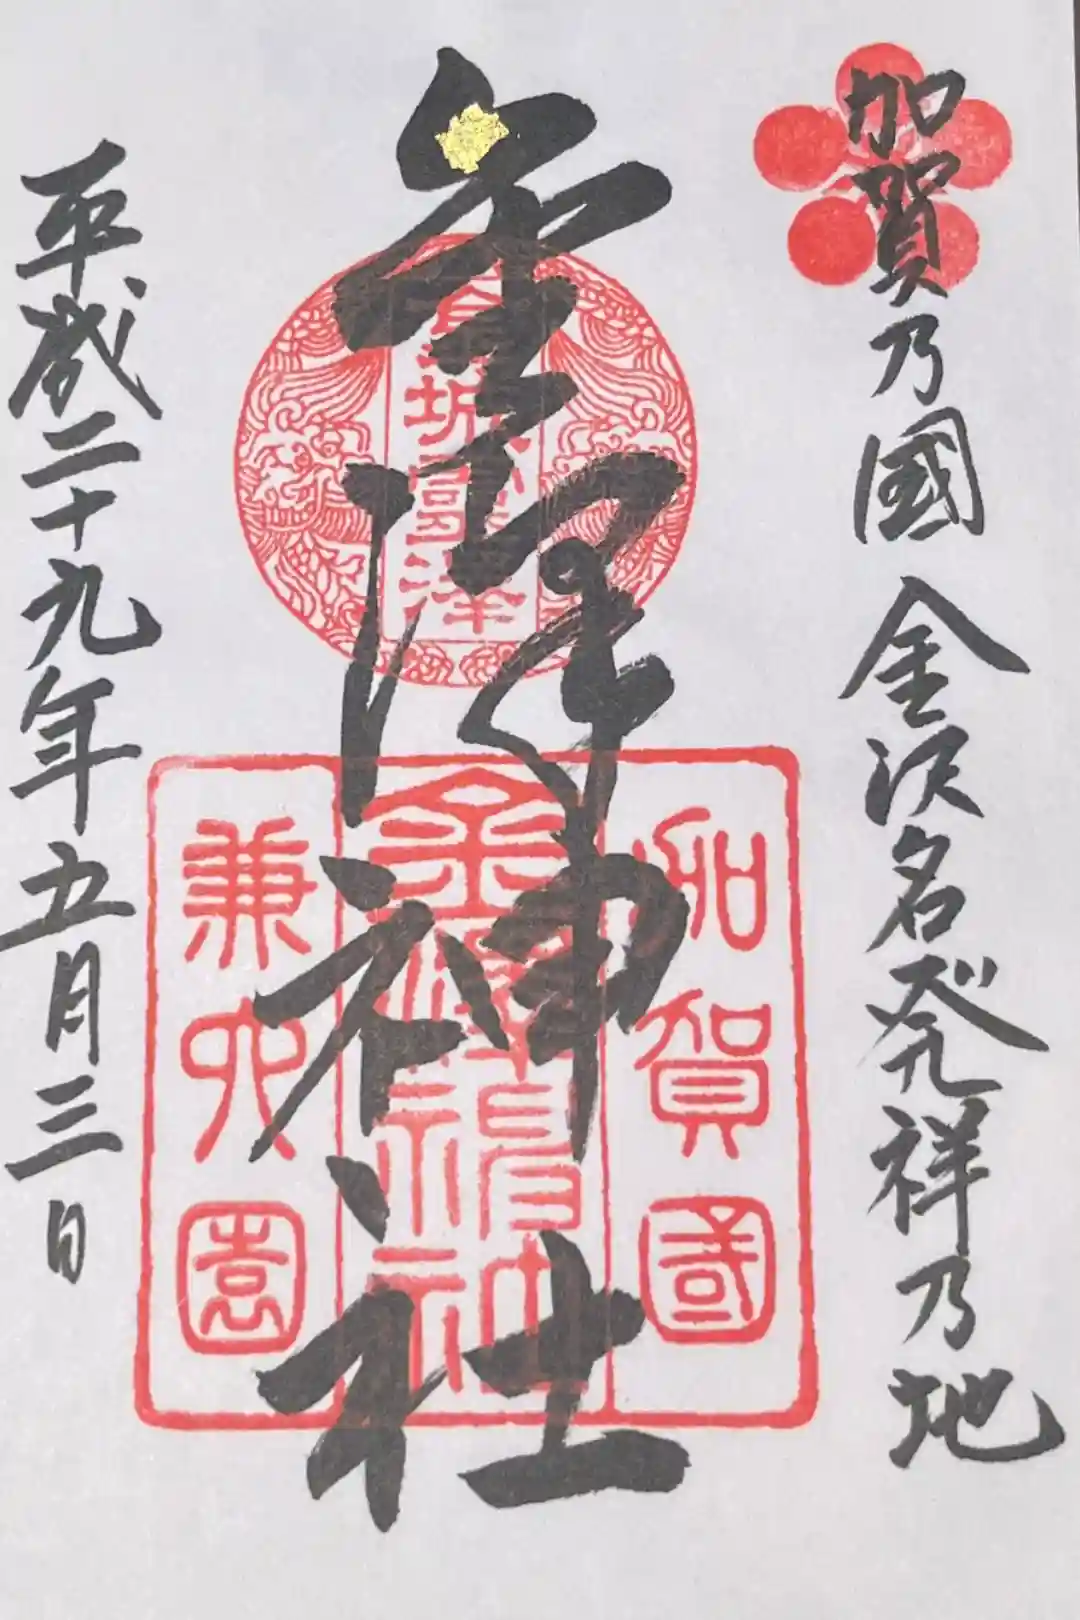 加賀乃國 金沢名発祥乃地
金澤神社
平成二十九年五月三日
加賀國
金澤神社
兼六園